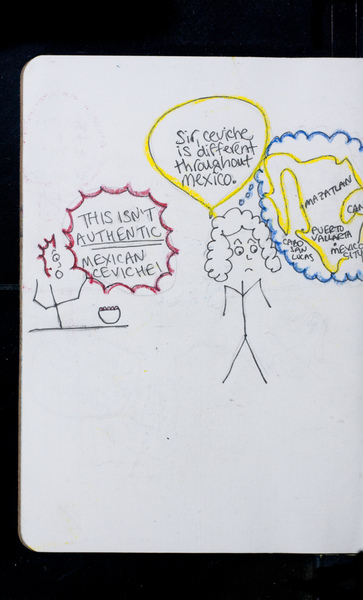 THIS ISN'T
AUTHENTIC
MEXICAN
CEVICHE!
Sir, ceviche
is different
throughout
mexico.
MAZATLAN
PUERTO
VALLARTA
CABO
SAN
LUCAS
MEXICO
CITY